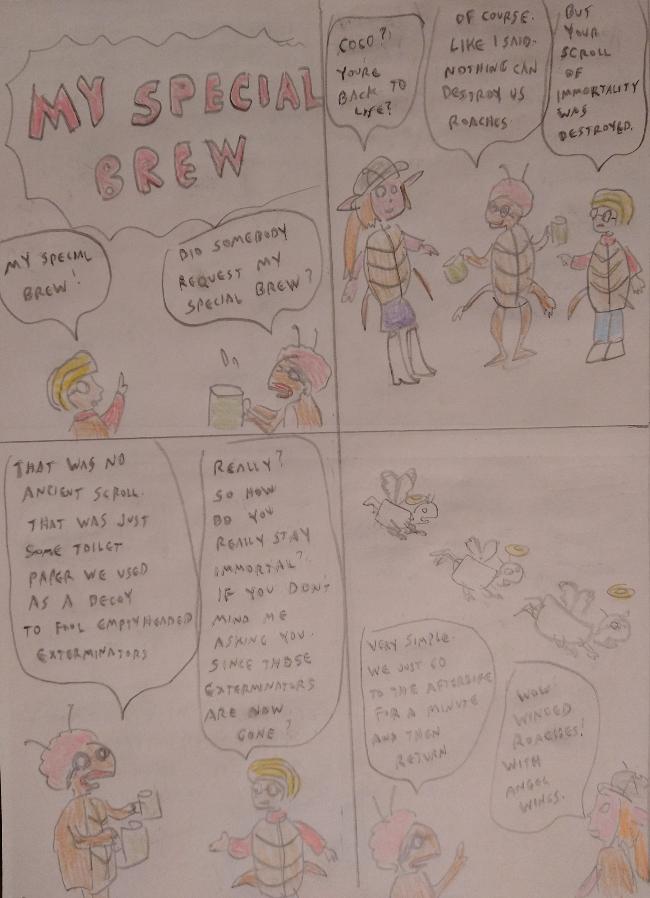 MY SPECIAL
BREW
MY SPECIAL
BREW!
DID SOMEBODY
REQUEST MY
SPECIAL BREW?
COCO?!
YOURE
BACK TO
LIFE?
OF COURSE.
LIKE I SAID.
NOTHING CAN
DESTROY US
ROACHES.
BUT
YOUR
SCROLL
OF
IMMORTALITY
WAS
DESTROYED.
THAT WAS NO
ANCIENT SCROLL.
THAT WAS JUST
SOME TOILET
PAPER WE USED
AS A DECOY
TO FOOL EMPTYHEADED
EXTERMINATORS
REALLY?
SO HOW
DO YOU
REALLY STAY
IMMORTAL?
IF YOU DON'T
MIND ME
ASKING YOU.
SINCE THOSE
EXTERMINATORS
ARE NOW
GONE?
VERY SIMPLE.
WE JUST GO
TO THE AFTERLIFE
FOR A MINUTE
AND THEN
RETURN
WOW!
WINGED
ROACHES!
WITH
ANGEL
WINGS.